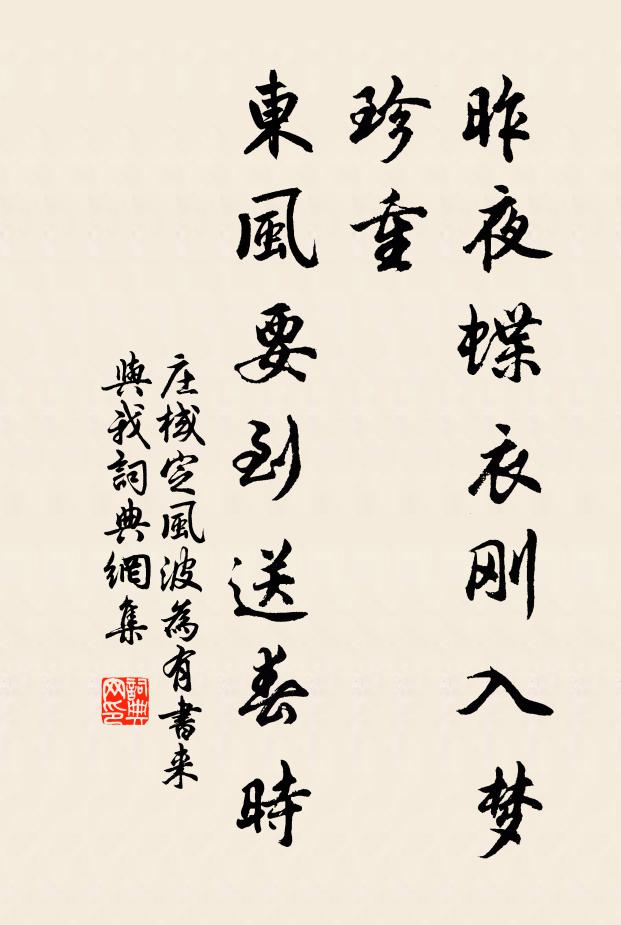 昨夜蝶衣刚入梦
珍重
東風要到送春時
庄棫定風波為有書来
與我詞典網集
詞典网印